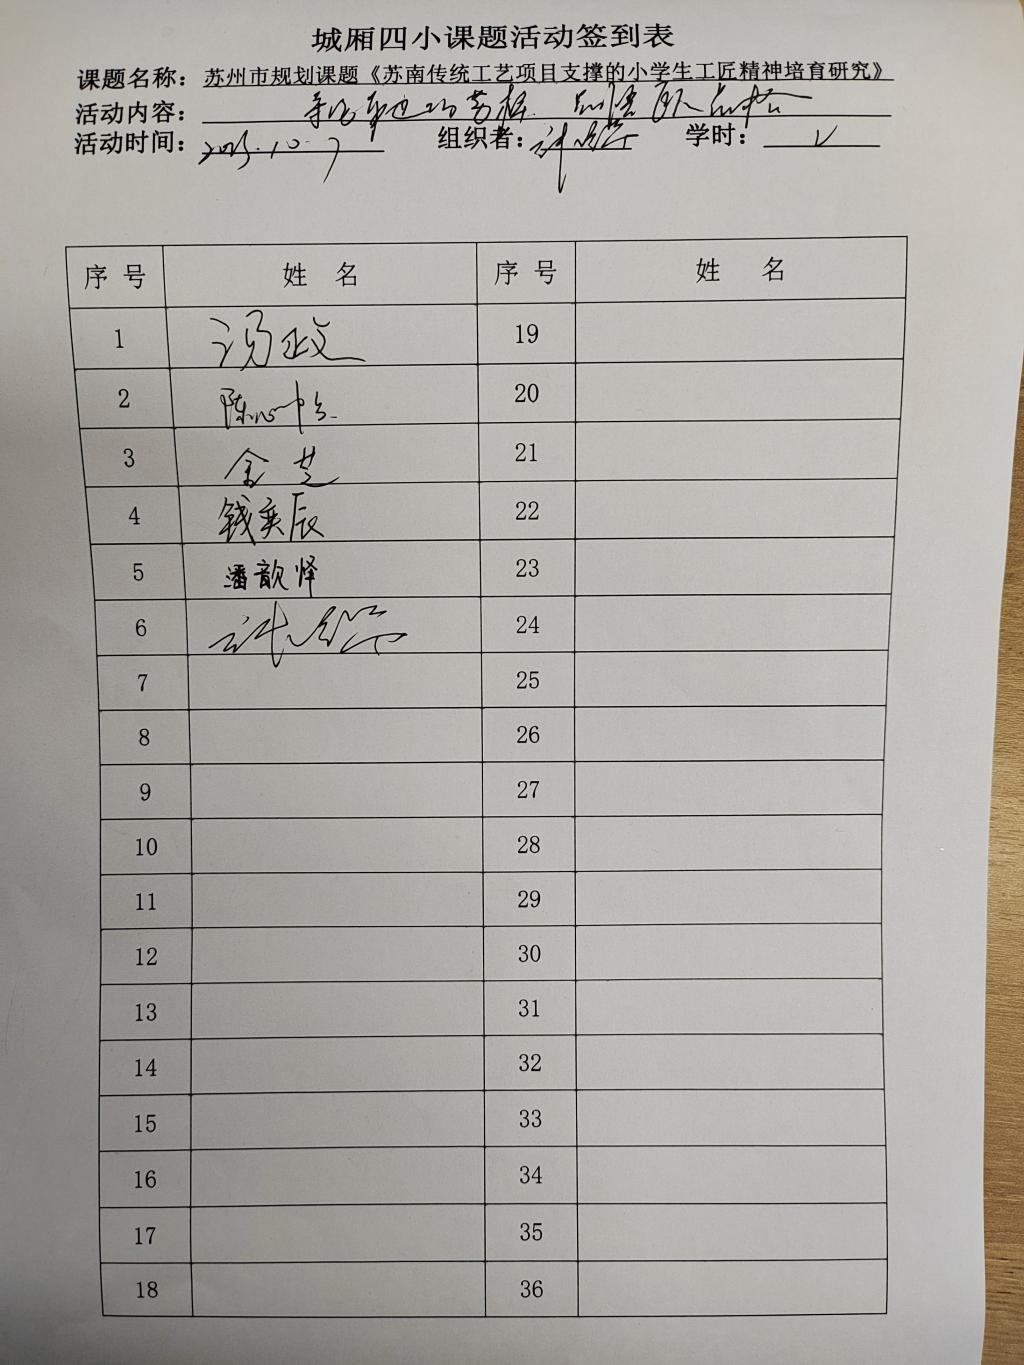 城厢四小课题活动签到表
课题名称：苏州市规划课题《苏南传统工艺项目支撑的小学生工匠精神培育研究》
活动内容：
活动时间： 组织者： 学时：
序号 姓名 序号 姓名
1 冯政 19
2 20
3 金芝 21
4 钱奕辰 22
5 潘歆怿 23
6 24
7 25
8 26
9 27
10 28
11 29
12 30
13 31
14 32
15 33
16 34
17 35
18 36